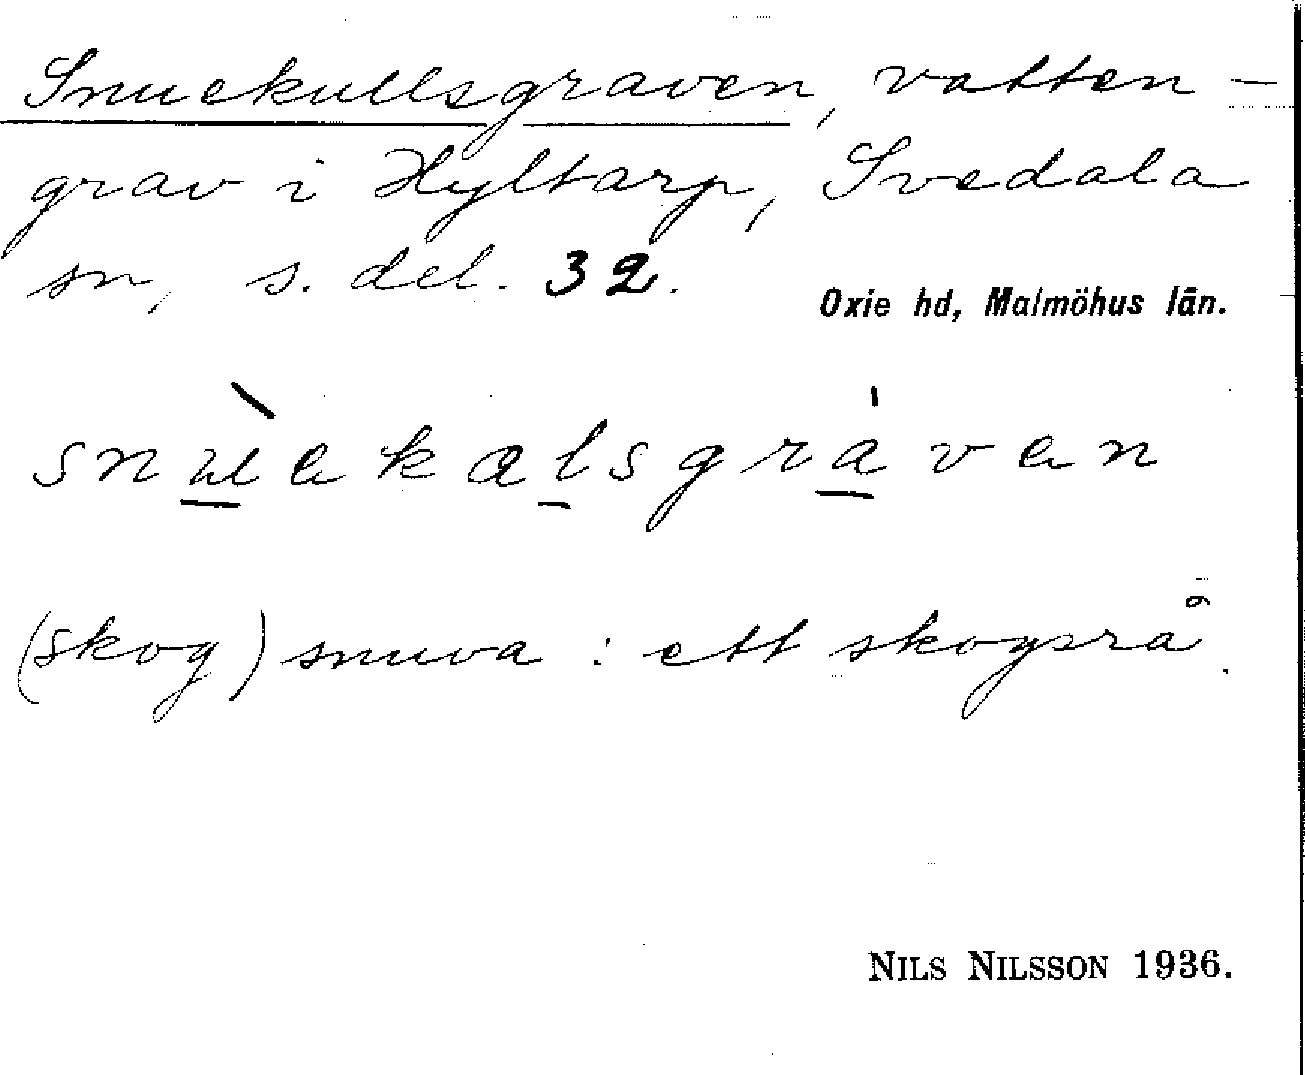 Snuekullsgraven, vatten-
grav i Hyltarp, Svedala
sn, s. del. 32.
Oxie hd, Malmöhus län.
snùekalsgráven
(skog) snuva : ett skogsrå.
NILS NILSSON 1936.